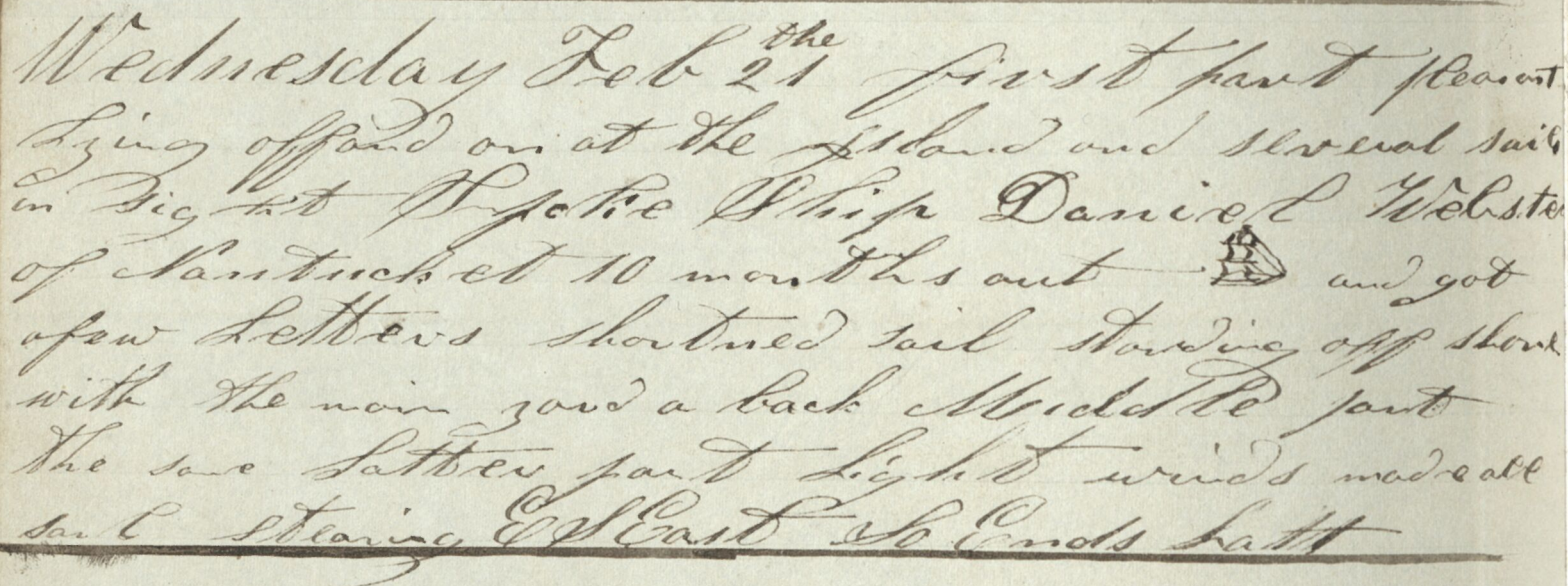 Wednesday Feb 21 the first part pleasant
Lying off and on at the Island and several sails
in Sight Spoke Ship Daniel Webster
of Nantucket 10 months out and got
a few Letters shortned sail standing off shore
with the main yard a back Middle part
the same Latter part Light winds made all
sail stearing ESEast So Ends Latt